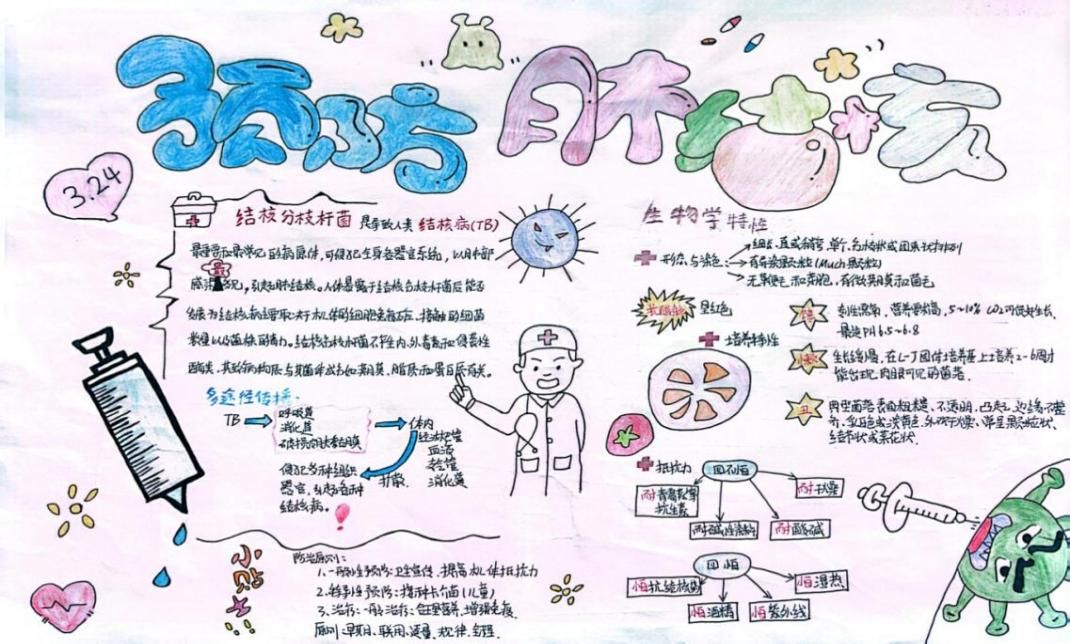 预防肺结核
3.24
结核分枝杆菌 是导致人类 结核病(TB)
最重要和最常见的病原体,可侵犯全身各器官系统,以肺部
感染最多见,引起肺结核。人体感染结核分枝杆菌后能否
发展为结核病主要取决于机体的细胞免疫状态、接触的细菌
数量以及菌株的毒力。结核分枝杆菌不产生内、外毒素和侵袭性
酶类,其致病物质与其菌体成分如荚膜、脂质和蛋白质有关。
多途径传播:
TB
呼吸道
消化道
破损的皮肤黏膜
体内
经淋巴管
血液
支气管
消化道
扩散
侵犯多种组织
器官,引起各种
结核病。
小贴士
防治原则:
1.一般性预防:卫生宣传、提高机体抵抗力
2.特异性预防:接种卡介苗(儿童)
3.治疗:一般治疗:合理营养,增强免疫
原则:早期、联用、适量、规律、全程
生物学特性
形态与染色:
细长、直或稍弯,单个、分枝状或团束状排列
有异染颗粒(Much颗粒)
无鞭毛和芽胞,有微荚膜和菌毛
抗酸染
呈红色
培养特性
专性需氧,营养要求高,5~10% CO2可促生长,
最适pH6.5~6.8
生长缓慢,在L-J固体培养基上培养2-6周才
能出现肉眼可见的菌落
丑
典型菌落表面粗糙、不透明、凸起、边缘不整
齐、乳白色或淡黄色,外观干燥、常呈颗粒状、
结节状或菜花状。
抵抗力
四不怕
耐青霉素等
抗生素
耐碱性染料
耐酸碱
耐干燥
四怕
怕抗结核药
怕酒精
怕紫外线
怕湿热